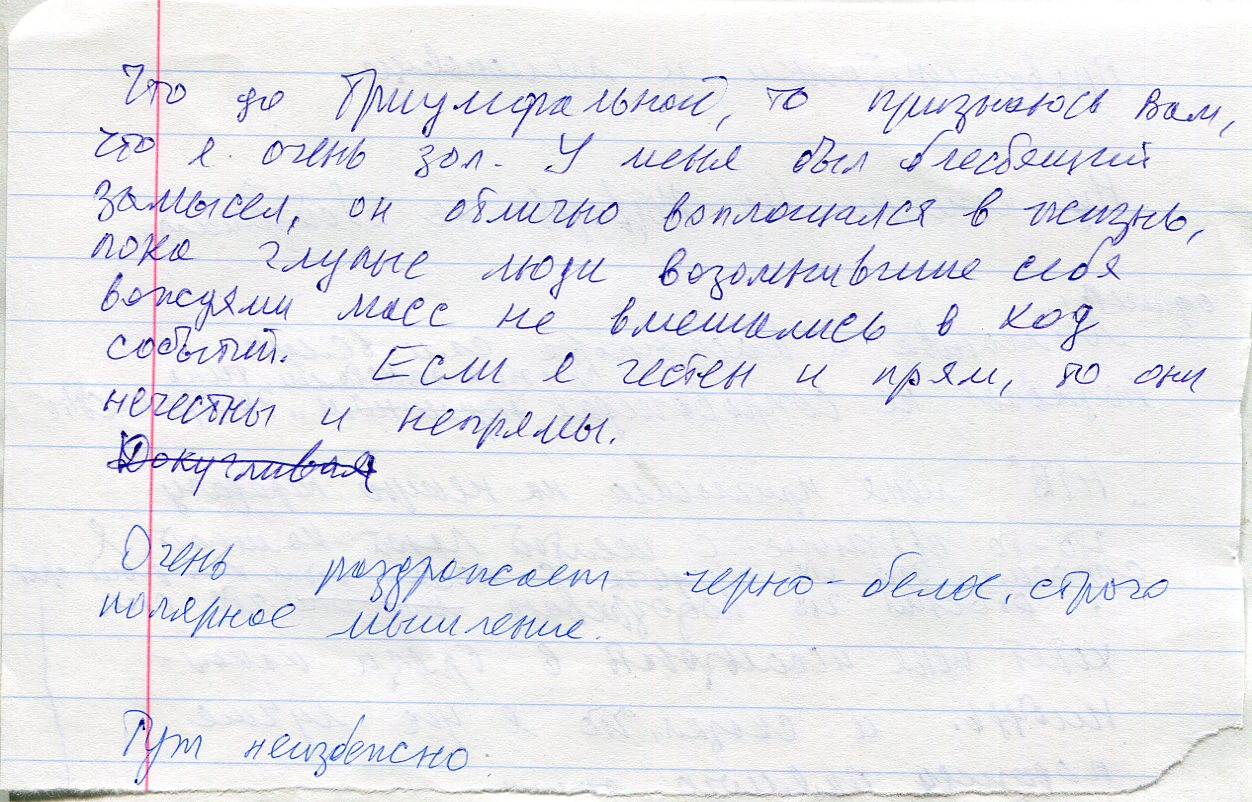 Что до Триумфальной, то признаюсь Вам,
что я очень зол. У меня был блестящий
замысел, он отлично воплощался в жизнь,
пока глупые люди возомнившие себя
вождями масс не вмешались в ход
событий. Если я честен и прям, то они
нечестны и непрямы.
Докучливая
Очень раздражает черно-белое, строго
полярное мышление.
Тут неизбежно